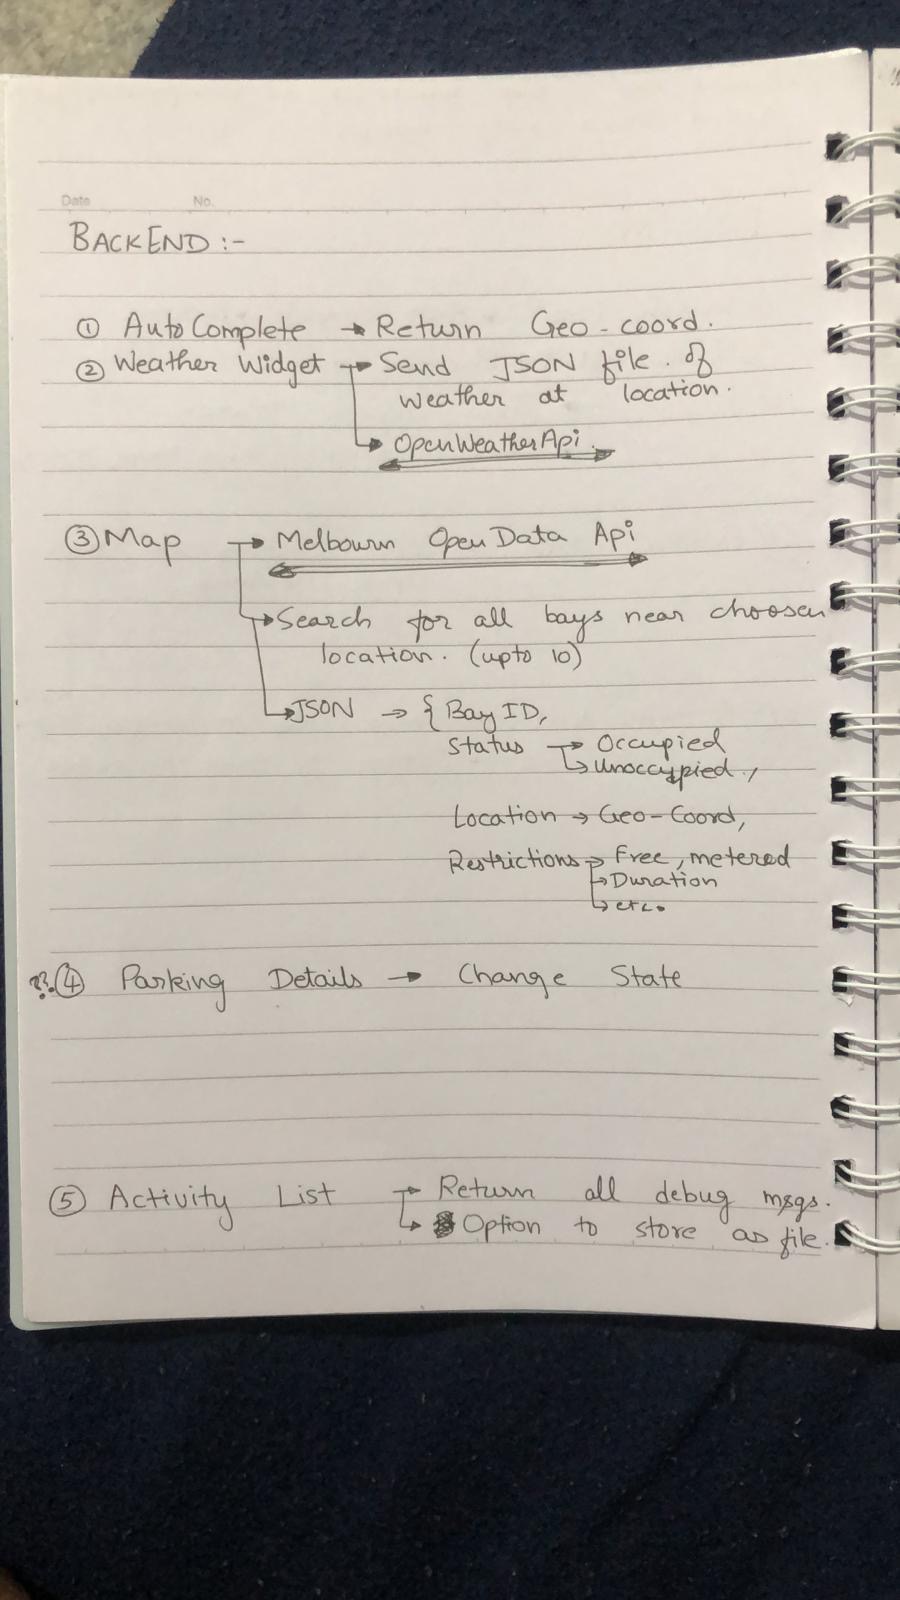 Date No.
BACKEND :-
① AutoComplete → Return Geo-coord.
② Weather Widget → Send JSON file of
weather at location.
→ OpenWeatherApi.
③ Map → Melbourn OpenData Api
→ Search for all bays near choosen
location. (upto 10)
→ JSON → { Bay ID,
Status → Occupied
→ Unoccupied,
Location → Geo-Coord,
Restrictions → Free, metered
→ Duration
→ etc.
??. ④ Parking Details → Change State
⑤ Activity List → Return all debug msgs.
→ Option to store as file.